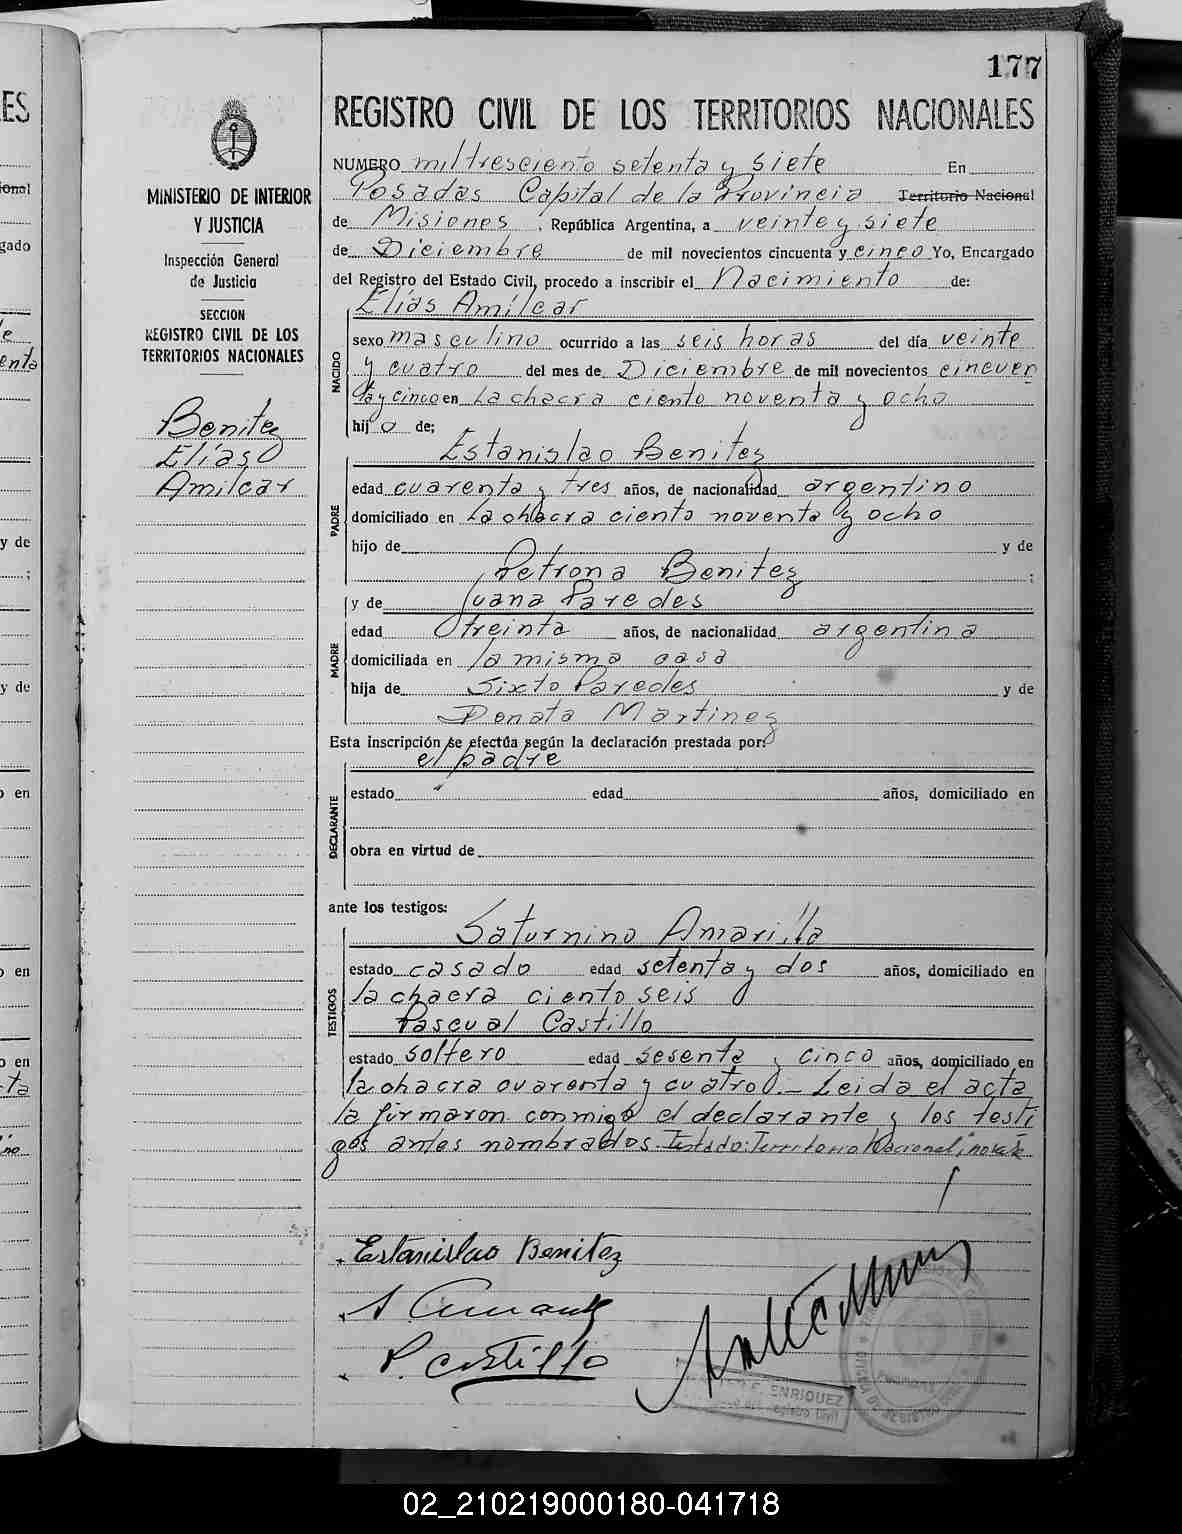 177
REGISTRO CIVIL DE LOS TERRITORIOS NACIONALES
MINISTERIO DE INTERIOR
Y JUSTICIA
Inspección General
de Justicia
SECCION
REGISTRO CIVIL DE LOS
TERRITORIOS NACIONALES
Benitez
Elías
Amilcar
NUMERO mil tresciento setenta y siete En
Posadas Capital de la Provincia Territorio Nacional
de Misiones , República Argentina, a veinte y siete
de Diciembre de mil novecientos cincuenta y cinco Yo, Encargado
del Registro del Estado Civil, procedo a inscribir el Nacimiento de:
Elías Amílcar
NACIDO
sexo masculino ocurrido a las seis horas del día veinte
y cuatro del mes de Diciembre de mil novecientos cincuen
ta y cinco en La chacra ciento noventa y ocho
hij o de;
Estanislao Benitez
PADRE
edad cuarenta y tres años, de nacionalidad argentino
domiciliado en La chacra ciento noventa y ocho
hijo de y de
Petrona Benitez ;
y de Juana Paredes
MADRE
edad treinta años, de nacionalidad argentina
domiciliada en la misma casa
hija de Sixto Paredes y de
Donata Martinez
Esta inscripción se efectúa según la declaración prestada por:
el padre
DECLARANTE
estado edad años, domiciliado en
obra en virtud de
ante los testigos:
Saturnino Amarilla
TESTIGOS
estado casado edad setenta y dos años, domiciliado en
la chacra ciento seis
Pascual Castillo
estado soltero edad sesenta y cinco años, domiciliado en
la chacra cuarenta y cuatro.- Leida el acta
la firmaron conmigo el declarante y los testi
gos antes nombrados. Testado: Territorio Nacional;
Estanislao Benitez
P. Castillo
ENRIQUEZ
02_210219000180-041718